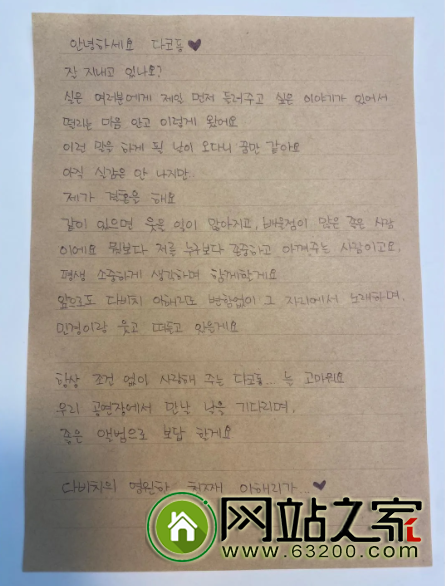 안녕하세요 디코들♥
잘 지내고 있나요?
실은 여러분에게 제일 먼저 들려주고 싶은 이야기가 있어서
떨리는 마음 안고 이렇게 왔어요
이런 말을 하게 될 날이 오다니 꿈만 같아요
아직 실감은 안 나지만
제가 결혼을 해요
같이 있으면 웃을 일이 많아지고, 배울점이 많은 좋은 사람
이에요 뭣보다 저를 누구보다 존중하고 아껴주는 사람이고요,
평생 소중하게 생각하며 함께할게요
앞으로도 다비치 이해리도 변함없이 그 자리에서 노래하며,
민경이랑 웃고 떠들고 있을게요
항상 조건 없이 사랑해 주는 디코들... 늘 고마워요
우리 공연장에서 만날 날을 기다리며,
좋은 앨범으로 보답 할게요
다비치의 영원한 첫째 이해리가...♥
网站之家
www.63200.com